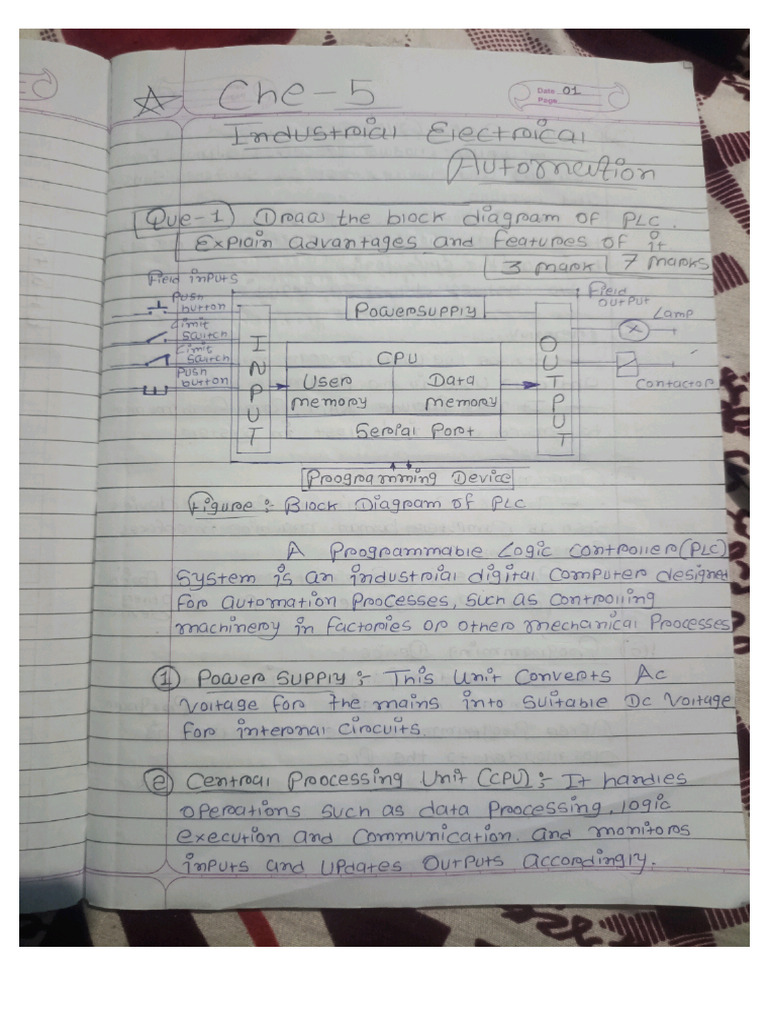 Che-5
Date 01
Page
Industrial Electrical
Automation
Que-1 Draw the block diagram of PLC.
Explain advantages and features of it
3 mark 7 marks
Field inputs
Push button
Limit switch
Limit switch
Push button
INPUT
Power supply
CPU
User memory
Data memory
Serial Port
OUTPUT
Field output
Lamp
Contactor
Programming Device
Figure :- Block Diagram of PLC
A Programmable Logic Controller (PLC)
System is an industrial digital computer designed
for automation Processes, such as controlling
machinery in factories or other mechanical Processes
1 Power Supply :- This Unit Converts Ac
Voltage for the mains into suitable Dc Voltage
for internal circuits.
2 Central Processing Unit (CPU) :- It handles
operations such as data Processing, logic
execution and communication. and monitors
inputs and updates outputs accordingly.